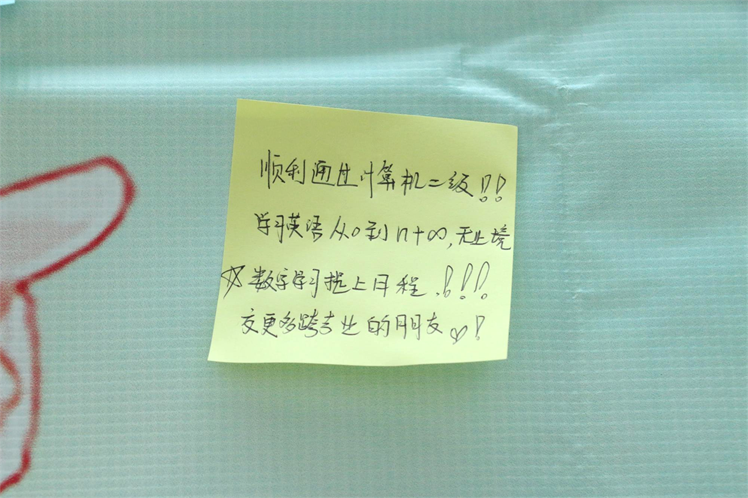 顺利通过计算机二级!!
学习英语从0到n+∞,无止境
☆数字学习提上日程.!!!
交更多跨专业的朋友♡!